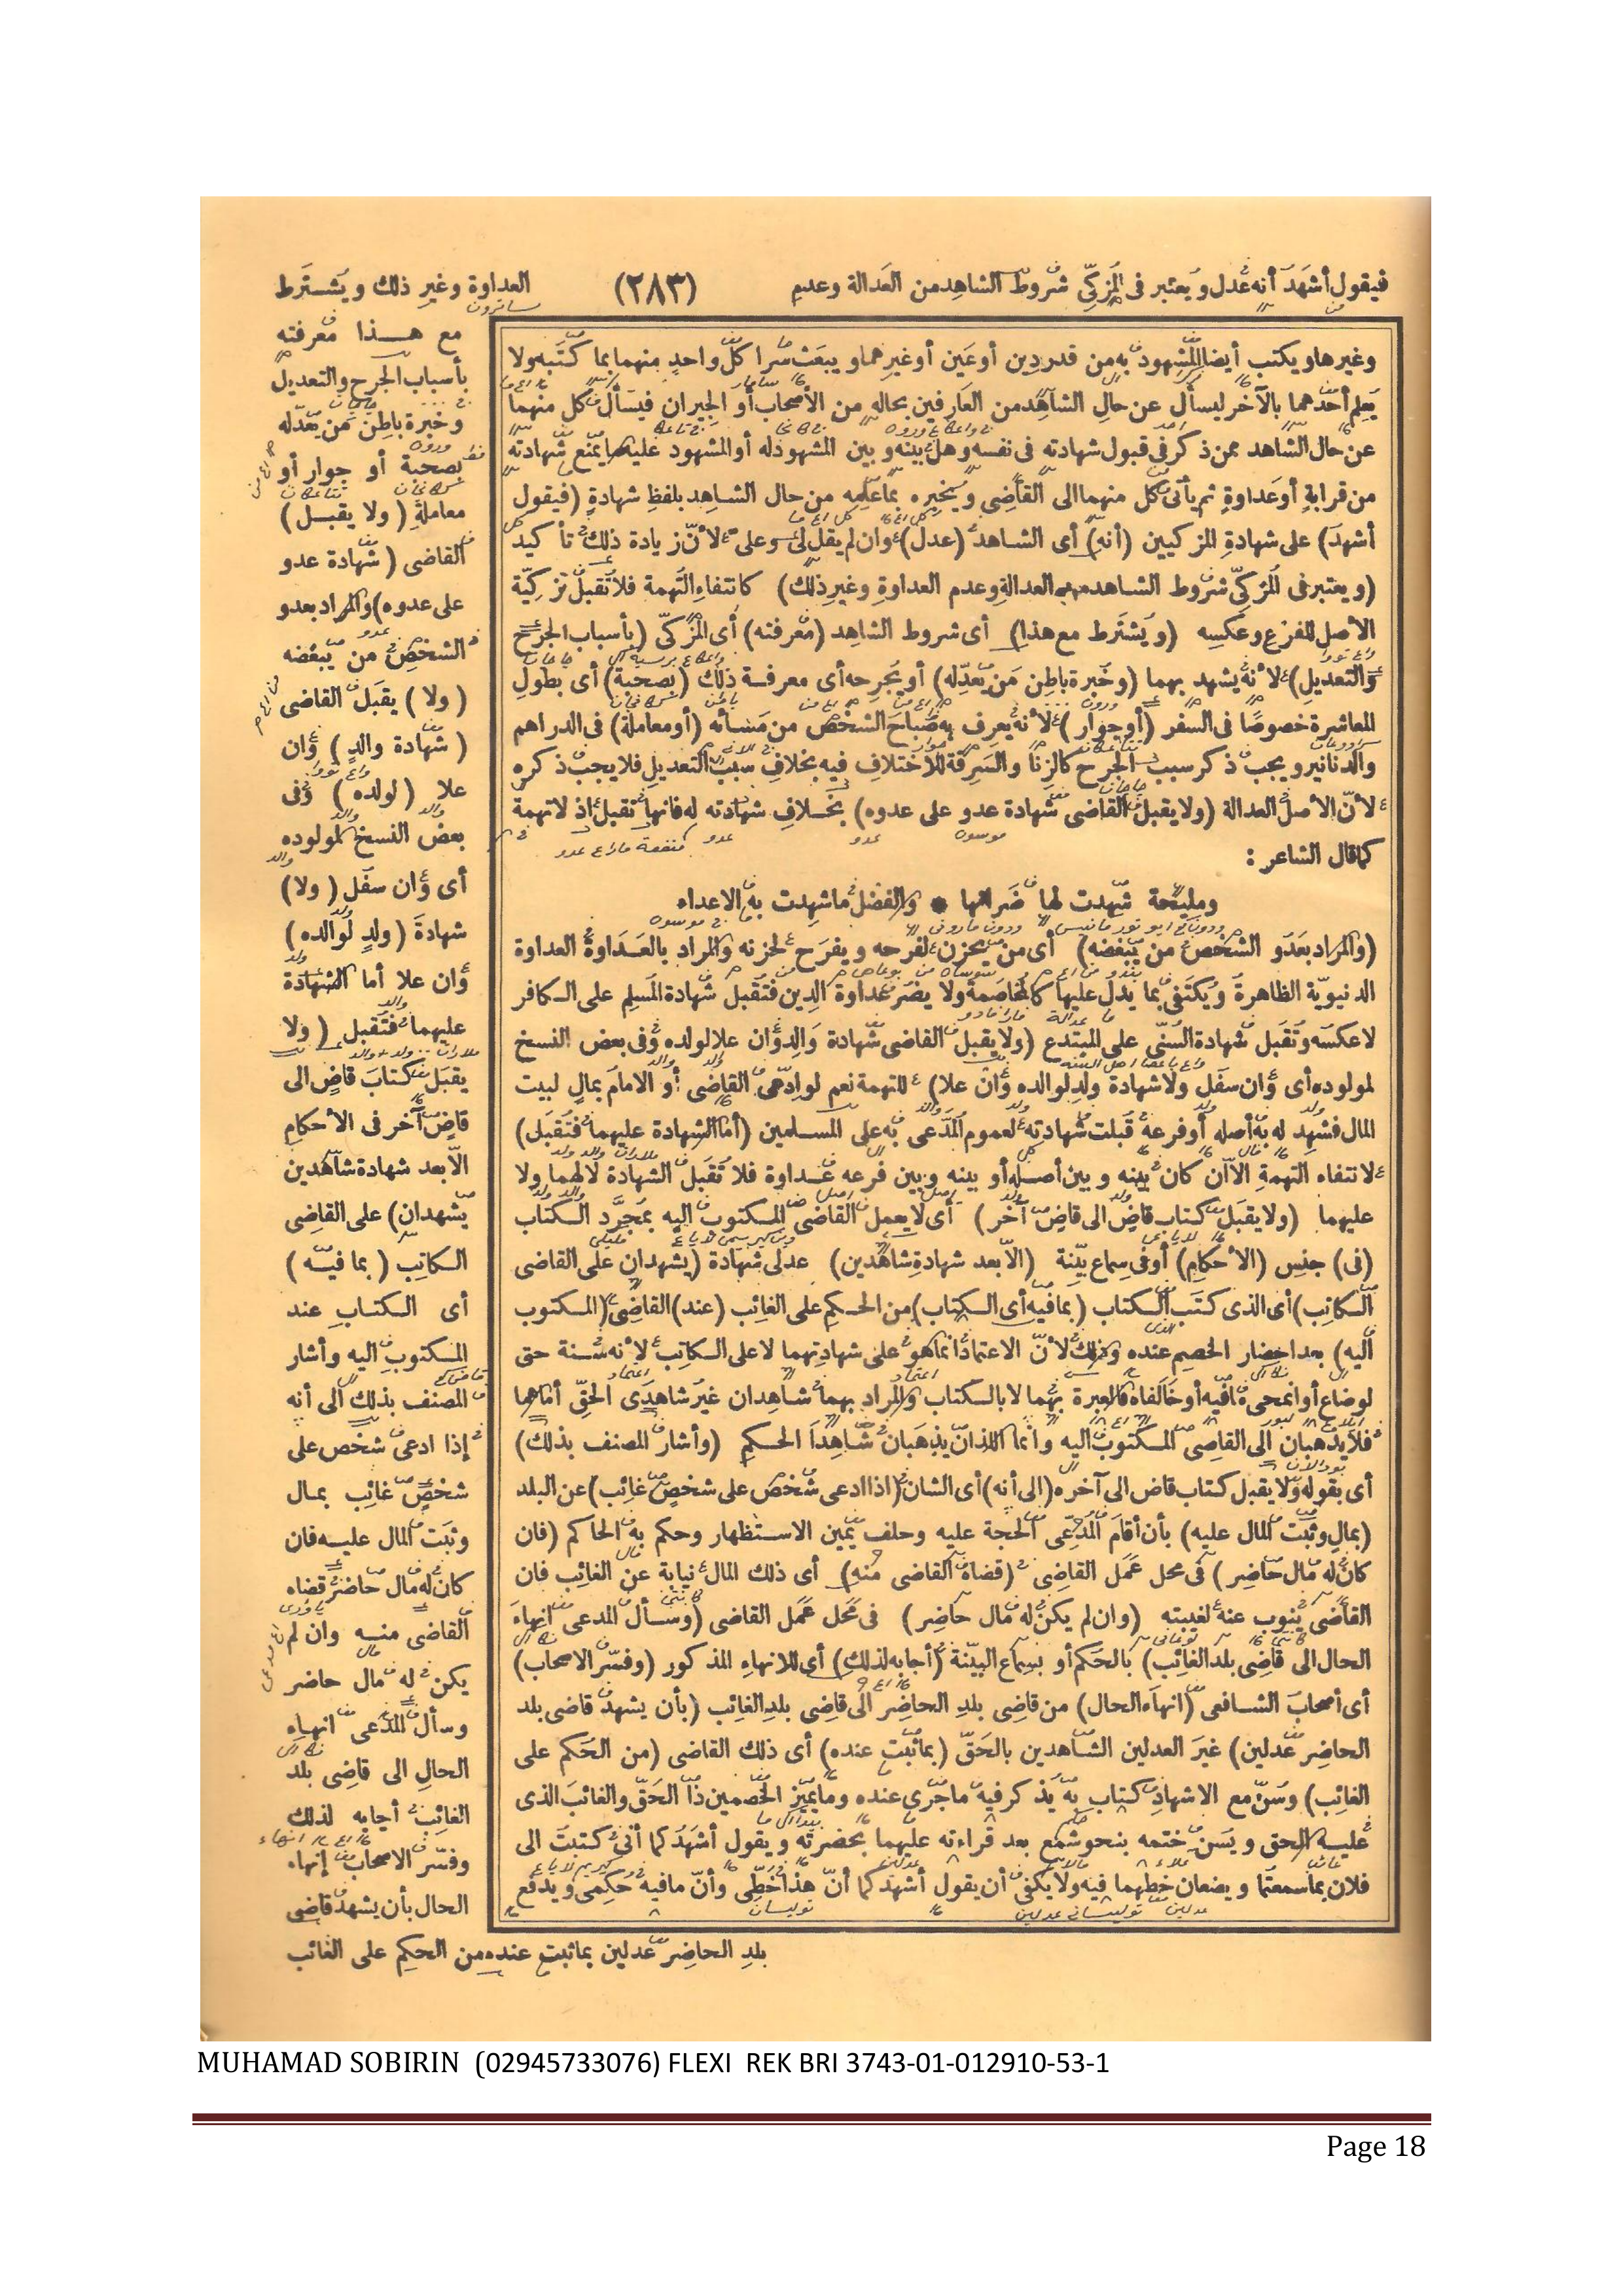 فيقول أشهد أنه عدل ويعتبر في المزكي شروط الشاهد من العدالة وعدم (٢٨٣) العداوة وغير ذلك ويشترط
مع هذا معرفته
بأسباب الجرح والتعديل
وخبرة باطن من يعدله
بصحبة أو جوار أو
معاملة (ولا يقبل)
القاضى (شهادة عدو
على عدوه) والمراد بعدو
الشخص من يبغضه
(ولا) يقبل القاضى
(شهادة والد) وان
علا (لولده) وفى
بعض النسخ لمولوده
أى وان سفل (ولا)
شهادة (ولد لوالده)
وان علا أما الشهادة
عليهما فتقبل (ولا
يقبل كتاب قاض الى
قاض آخر فى الأحكام
الا بعد شهادة شاهدين
يشهدان) على القاضى
الكاتب (بما فيه)
أى الكتاب عند
المكتوب اليه وأشار
المصنف بذلك الى أنه
إذا ادعى شخص على
شخص غائب بمال
وثبت المال عليه فان
كان له مال حاضر قضاه
القاضى منه وان لم
يكن له مال حاضر
وسأل المدعى انهاء
الحال الى قاضى بلد
الغائب أجابه لذلك
وفسر الاصحاب إنهاء
الحال بأن يشهد قاضى
بلد الحاضر عدلين بما ثبت عنده من الحكم على الغائب
وغيرها ويكتب أيضا للشهود به من قدر دين أو عين أو غيرهما ويبعث سرا كل واحد منهما بما كتبه ولا
يعلم أحدهما بالآخر ليسأل عن حال الشاهد من العارفين بحاله من الأصحاب أو الجيران فيسأل كل منهما
عن حال الشاهد ممن ذكر فى قبول شهادته فى نفسه وهل بينه وبين المشهود له أو المشهود عليه ما يمنع شهادته
من قرابة أو عداوة ثم يأتى كل منهما الى القاضى ويخبره بما علمه من حال الشاهد بلفظ شهادة (فيقول
أشهد) على شهادة المزكيين (أنه) أى الشاهد (عدل) وان لم يقل لى وعلى لأن زيادة ذلك تأكيد
(ويعتبر فى المزكى شروط الشاهد من العدالة وعدم العداوة وغير ذلك) كانتفاء التهمة فلا تقبل تزكية
الأصل للفرع وعكسه (ويشترط مع هذا) أى شروط الشاهد (معرفته) أى المزكى (بأسباب الجرح
والتعديل) لأنه يشهد بهما (وخبرة باطن من يعدله) أو يجرحه أى معرفة ذلك (بصحبة) أى بطول
المعاشرة خصوصا فى السفر (أو جوار) لأنه يعرف به صباح الشخص من مسائه (أو معاملة) فى الدراهم
والدنانير ويجب ذكر سبب الجرح كالزنا والسرقة للاختلاف فيه بخلاف سبب التعديل فلا يجب ذكره
لأن الأصل العدالة (ولا يقبل القاضى شهادة عدو على عدوه) بخلاف شهادته له فانها تقبل اذ لا تهمة
كما قال الشاعر :
ومليحة شهدت لها ضراتها * والفضل ما شهدت به الاعداء
(والمراد بعدو الشخص من يبغضه) أى من يحزن لفرحه ويفرح لحزنه والمراد بالعداوة العداوة
الدنيوية الظاهرة ويكتفى بما يدل عليها كالمخاصمة ولا يضر عداوة الدين فتقبل شهادة المسلم على الكافر
لا عكسه وتقبل شهادة السنى على المبتدع (ولا يقبل القاضى شهادة والد وان علا لولده وفى بعض النسخ
لمولوده أى وان سفل ولا شهادة ولد لوالده وان علا) للتهمة نعم لو ادعى القاضى أو الامام بمال لبيت
المال فشهد له به أصله أو فرعه قبلت شهادته لعموم المدعى به على المسلمين (أما الشهادة عليهما فتقبل)
لانتفاء التهمة الا ان كان بينه وبين أصله أو بينه وبين فرعه عداوة فلا تقبل الشهادة لا لهما ولا
عليهما (ولا يقبل كتاب قاض الى قاض آخر) أى لا يعمل القاضى المكتوب اليه بمجرد الكتاب
(فى) جنس (الأحكام) أو فى سماع بينة (الا بعد شهادة شاهدين) عدلى شهادة (يشهدان على القاضى
الكاتب) أى الذى كتب الكتاب (بما فيه أى الكتاب) من الحكم على الغائب (عند) القاضى (المكتوب
اليه) بعد احضار الخصم عنده وذلك لأن الاعتماد انما هو على شهادتهما لا على الكاتب لأنه سنة حتى
لو ضاع أو انمحى ما فيه أو خالفاه فالعبرة بهما لا بالكتاب والمراد بهما شاهدان غير شاهدى الحق أما هما
فلا يذهبان الى القاضى المكتوب اليه وانما اللذان يذهبان شاهدا الحكم (وأشار المصنف بذلك)
أى بقوله ولا يقبل كتاب قاض الى آخره (الى أنه) أى الشان (اذا ادعى شخص على شخص غائب) عن البلد
(بمال وثبت المال عليه) بأن أقام المدعى الحجة عليه وحلف يمين الاستظهار وحكم به الحاكم (فان
كان له مال حاضر) فى محل عمل القاضى (قضاه القاضى منه) أى ذلك المال نيابة عن الغائب فان
القاضى ينوب عنه لغيبته (وان لم يكن له مال حاضر) فى محل عمل القاضى (وسأل المدعى انهاء
الحال الى قاضى بلد الغائب) بالحكم أو بسماع البينة (أجابه لذلك) أى للانهاء المذكور (وفسر الاصحاب)
أى أصحاب الشافعى (انهاء الحال) من قاضى بلد الحاضر الى قاضى بلد الغائب (بأن يشهد قاضى بلد
الحاضر عدلين) غير العدلين الشاهدين بالحق (بما ثبت عنده) أى ذلك القاضى (من الحكم على
الغائب) وسن مع الاشهاد كتاب به يذكر فيه ما جرى عنده وما يميز الخصمين ذا الحق والغائب الذى
عليه الحق ويسن ختمه بنحو شمع بعد قراءته عليهما بحضرته ويقول أشهدكما أنى كتبت الى
فلان بما سمعتما ويضعان خطهما فيه ولا يكفى أن يقول أشهدكما أن هذا خطى وأن ما فيه حكمى ويدفع
MUHAMAD SOBIRIN (02945733076) FLEXI REK BRI 3743-01-012910-53-1
Page 18